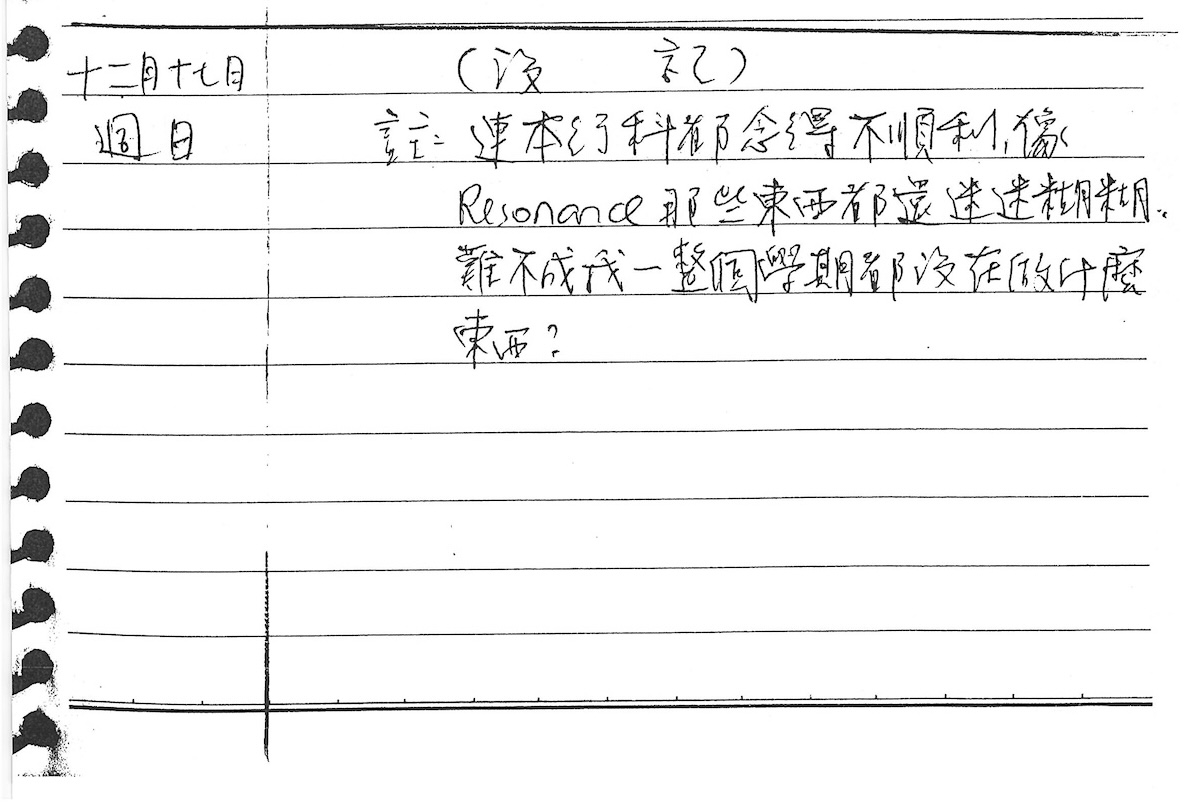 十二月十七日
週日
(沒 記)
註: 連本行科都念得不順利,像
Resonance 那些東西都還迷迷糊糊.
難不成我一整個學期都沒在做什麼
東西?